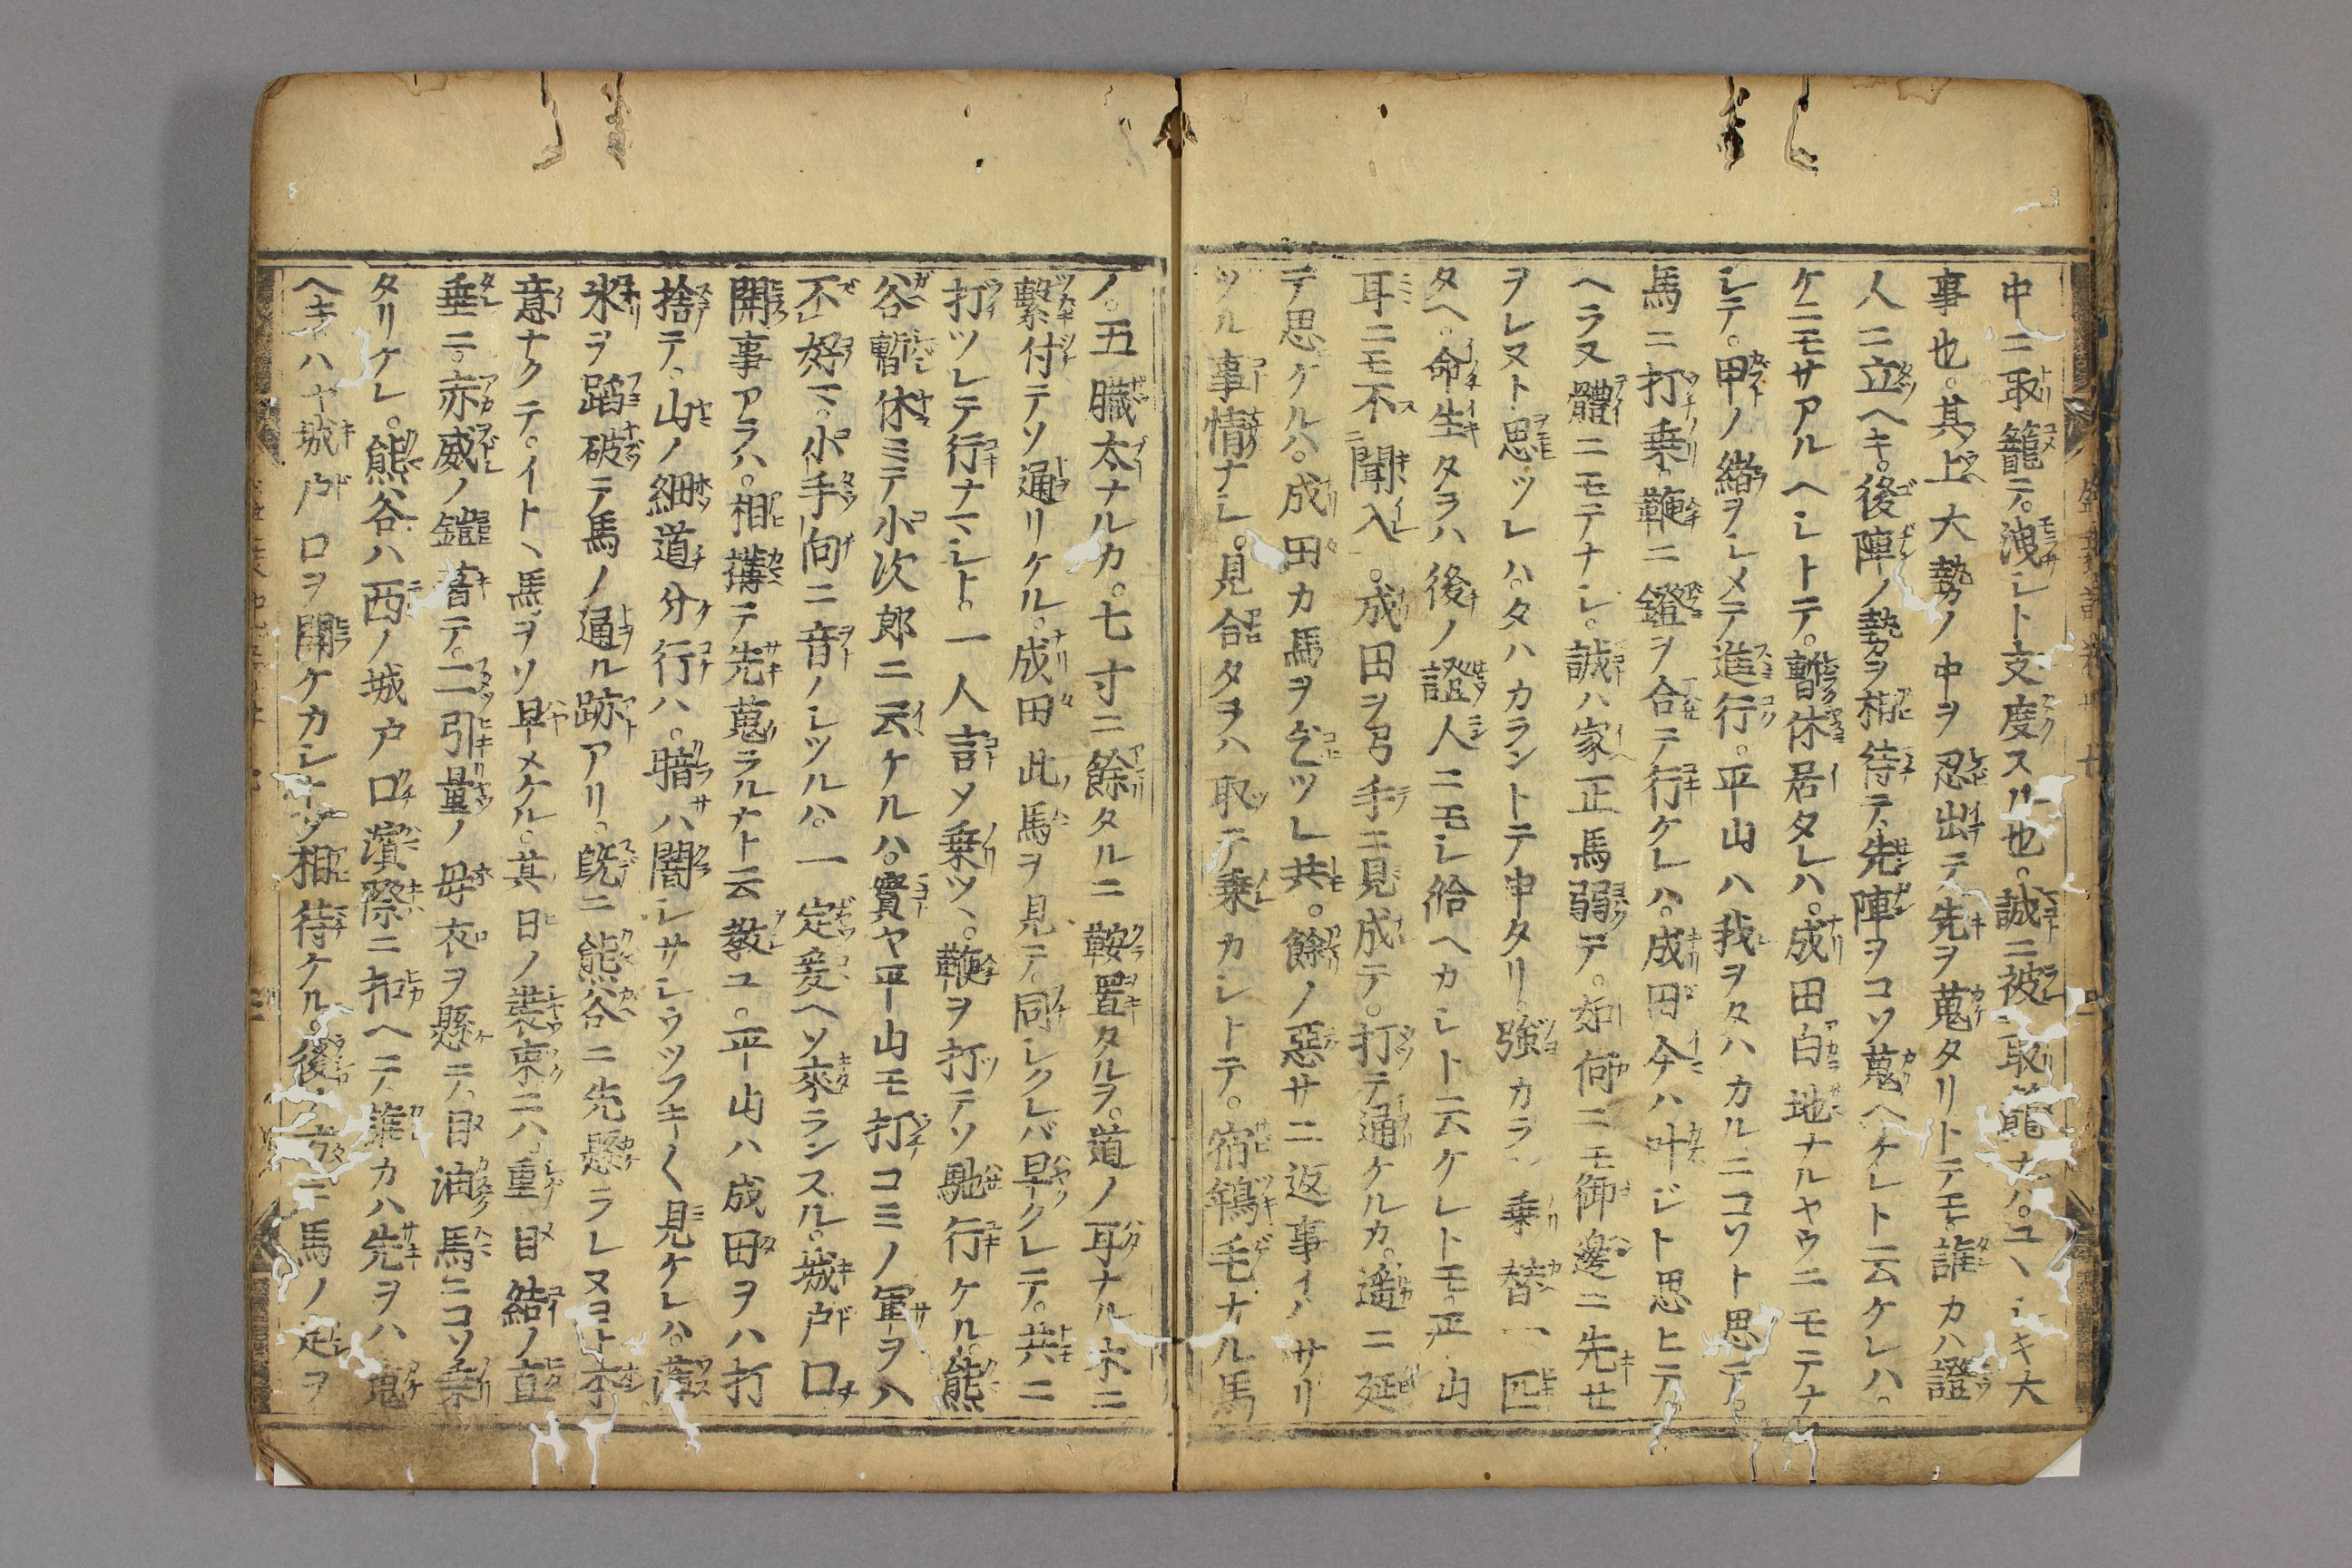 中ニ取籠テ。洩レト支度スル也。誠ニ被取籠ナハ。ユヽシキ大
事也。其上大勢ノ中ヲ忍出テ先ヲ蒐タリトテモ。誰カハ證
人ニ立ヘキ。後陣ノ勢ヲ相待テ、先陣ヲコソ蒐ヘケレト云ケレハ。
ケニモサアルヘシトテ。暫休居タレハ。成田白地ナルヤウニモテナ
シテ。甲ノ緒ヲシメテ進行。平山ハ我ヲタハカルニコソト思テ。
馬ニ打乗、鞭ニ鐙ヲ合テ行ケレハ。成田今ハ叶ジト思ヒテ。
ヘラヌ體ニモテナシ。誠ハ家正馬弱テ。如何ニモ御邊ニ先セ
ヲレヌト思ツレハ。タハカラントテ申タリ。強カラン乗替一匹
タヘ。命生タラハ後ノ證人ニモシ給ヘカシト云ケレトモ。平山
耳ニモ不聞入。成田ヲ弓手ニ見成テ。打テ通ケルカ。遙ニ延
テ思ケルハ。成田カ馬ヲ乞ツレ共。餘ノ惡サニ返事イハサリ
ツル事情ナシ。見合タラハ取テ乗カシトテ。宿鴾毛ナル馬
ノ。五臓太ナルカ。七寸ニ餘タルニ鞍置タルヲ。道ノ耳ナル木ニ
繫付テソ通リケル。成田此馬ヲ見テ。同シクレバ早クレテ。共ニ
打ツレテ行ナマシト。一人言ソ乗ツヽ。鞭ヲ打テソ馳行ケル。熊
谷暫休ミテ小次郎ニ云ケルハ。實ヤ平山モ打コミノ軍ヲハ
不好マ。小手向ニ音ノシツルハ。一定爰ヘソ來ランスル。城戸口
開事アラハ。相構テ先蒐ラルナト云教ユ。平山ハ成田ヲハ打
捨テ、山ノ細道分行ハ。暗サハ闇シサシウツフキ〱見ケレハ。薄
氷ヲ蹈破テ馬ノ通ル跡アリ。既ニ熊谷ニ先懸ラレヌヨト本
意ナクテ。イトヽ馬ヲソ早メケル。其日ノ裝束ニハ。重目結ノ直
垂ニ。赤威ノ鎧著テ。二引量ノ母衣ヲ懸テ。目油馬ニコソ乗
タリケレ。熊谷ハ西ノ城戸口濱際ニ扣ヘテ。誰カハ先ヲハ蒐
ヘキ。ハヤ城戸口ヲ開ケカシトソ相待ケル。後ノ方ニ馬ノ足ヲ